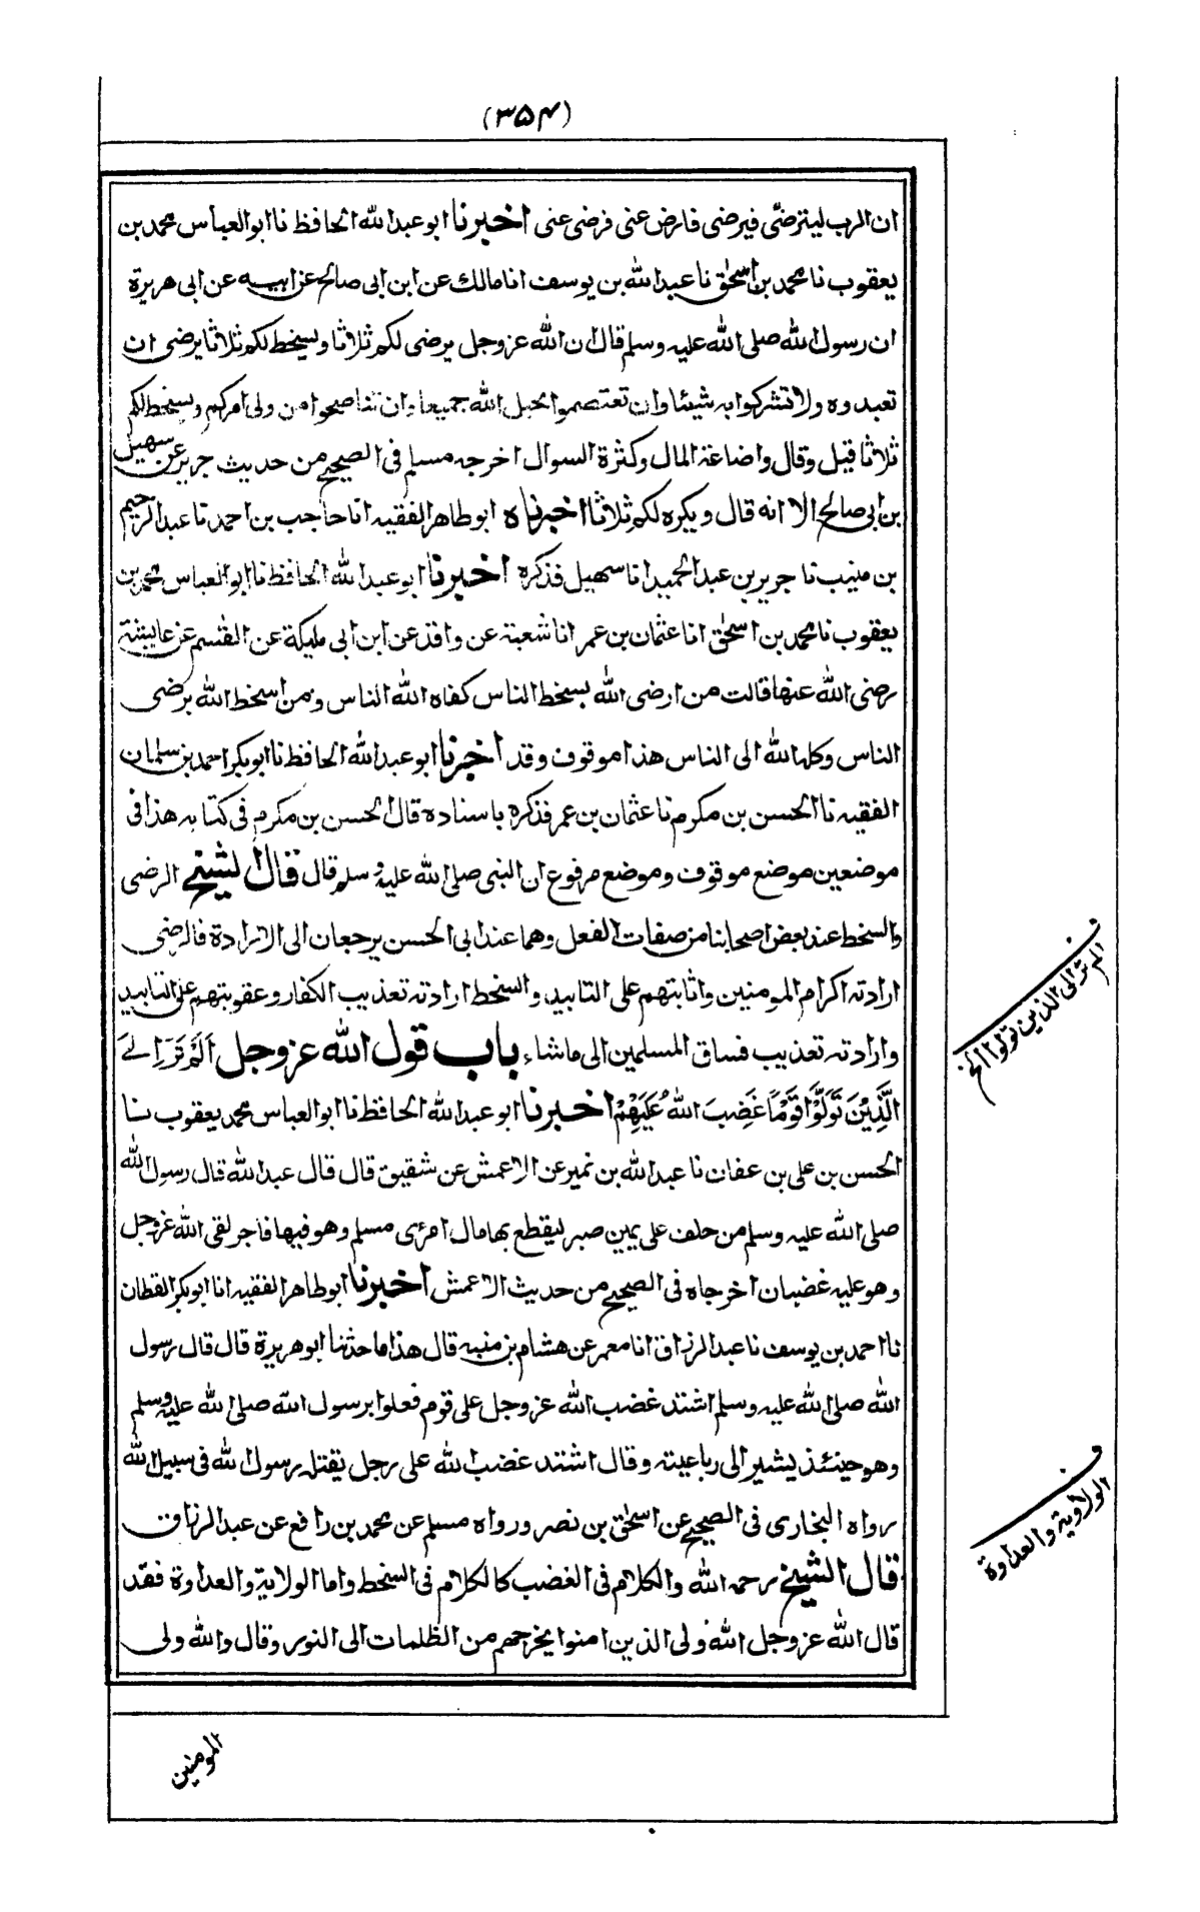 (۳۵۴)
ان الرب ليترضّى فيرضى فارض عنى فرضى عنى اخبرنا ابو عبد الله الحافظ نا ابو العباس محمد بن
يعقوب نا محمد بن اسحٰق نا عبد الله بن يوسف انا مالك عن ابن ابى صالح عن ابيه عن ابى هريرة
ان رسول الله صلى الله عليه وسلم قال ان الله عز وجل يرضى لكم ثلاثا ويسخط لكم ثلاثا يرضى ان
تعبدوه ولا تشركوا به شيئا وان تعتصموا بحبل الله جميعا وان تناصحوا من ولى امركم ويسخط لكم
ثلاثا قيل وقال واضاعة المال وكثرة السوال اخرجه مسلم فى الصحيح من حديث جرير عن سهيل
بن ابى صالح الا انه قال ويكره لكم ثلاثا اخبرناه ابو طاهر الفقيه انا حاجب بن احمد نا عبد الرحيم
بن منيب نا جرير بن عبد الحميد انا سهيل فذكره اخبرنا ابو عبد الله الحافظ نا ابو العباس محمد بن
يعقوب نا محمد بن اسحٰق انا عثمان بن عمر انا شعبة عن واقد عن ابن ابى مليكة عن القسم عن عايشة
رضى الله عنها قالت من ارضى الله بسخط الناس كفاه الله الناس ومن اسخط الله برضى
الناس وكله الله الى الناس هذا موقوف وقد اخبرنا ابو عبد الله الحافظ نا ابو بكر احمد بن سلمان
الفقيه نا الحسن بن مكرم نا عثمان بن عمر فذكره باسناده قال الحسن بن مكرم فى كتابه هذا فى
موضعين موضع موقوف وموضع مرفوع ان النبى صلى الله عليه وسلم قال قال الشيخ الرضى
والسخط عند بعض اصحابنا من صفات الفعل وهما عند ابى الحسن يرجعان الى الارادة فالرضى
ارادته اكرام المومنين واثابتهم على التابيد والسخط ارادته تعذيب الكفار وعقوبتهم على التابيد
وارادته تعذيب فساق المسلمين الى ماشاء باب قول الله عز وجل اَلَمْ تَرَ اِلَى
الَّذِيْنَ تَوَلَّوْا قَوْمًا غَضِبَ اللهُ عَلَيْهِمْ اخبرنا ابو عبد الله الحافظ نا ابو العباس محمد يعقوب نا
الحسن بن على بن عفان نا عبد الله بن نمير عن الاعمش عن شقيق قال قال عبد الله قال رسول الله
صلى الله عليه وسلم من حلف على يمين صبر ليقطع بها مال امرئ مسلم وهو فيها فاجر لقى الله عز وجل
وهو عليه غضبان اخرجاه فى الصحيح من حديث الاعمش اخبرنا ابو طاهر الفقيه انا ابو بكر القطان
نا احمد بن يوسف نا عبد الرزاق انا معمر عن هشام بن منبه قال هذا ما حدثنا ابو هريرة قال قال رسول
الله صلى الله عليه وسلم اشتد غضب الله عز وجل على قوم فعلوا برسول الله صلى الله عليه وسلم
وهو حينئذ يشير الى رباعيته وقال اشتد غضب الله على رجل يقتله رسول الله فى سبيل الله
رواه البخارى فى الصحيح عن اسحٰق بن نصر ورواه مسلم عن محمد بن رافع عن عبد الرزاق
قال الشيخ رحمه الله والكلام فى الغضب كالكلام فى السخط واما الولاية والعداوة فقد
قال الله عز وجل الله ولى الذين امنوا يخرجهم من الظلمات الى النور وقال والله ولى
المومنين
ف
الم تر الى الذين تولوا الخ
ف
الولاوية والعداوة